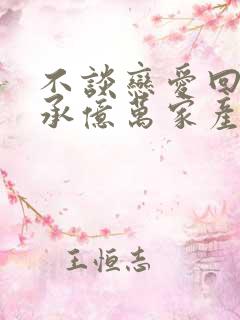 不談戀愛回
承億萬家產
王恒志